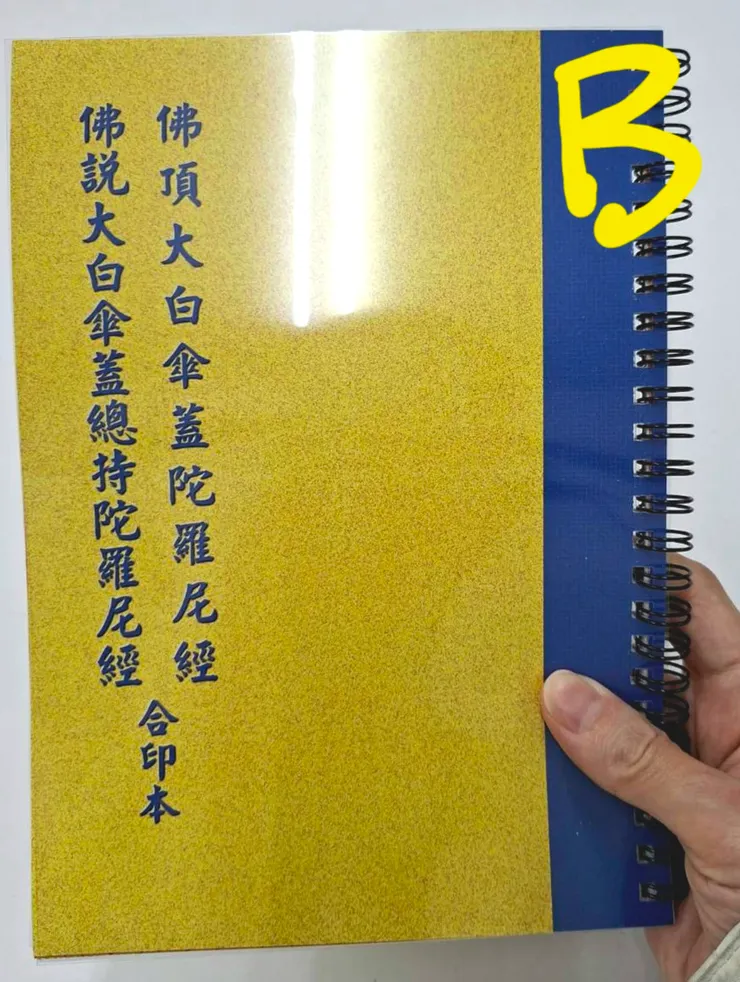 佛頂大白傘蓋陀羅尼經
佛説大白傘蓋總持陀羅尼經
合印本
B